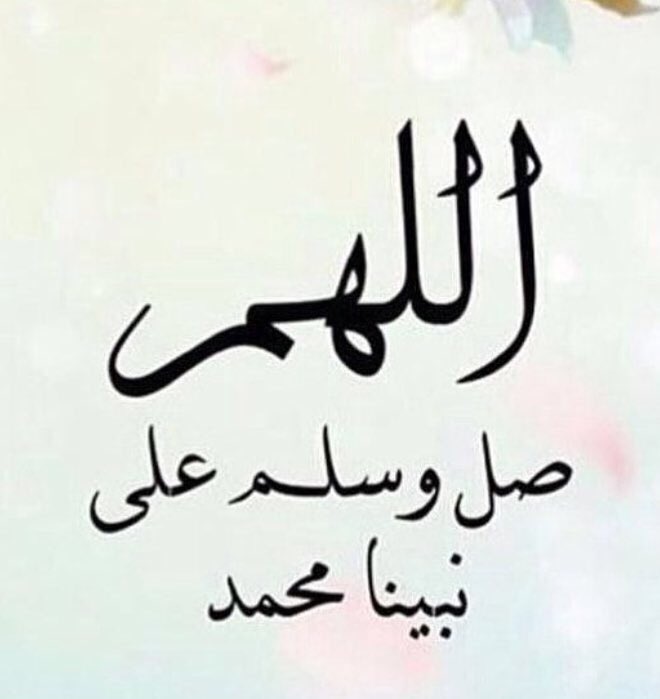 اللهم
صل وسلم على
نبينا محمد